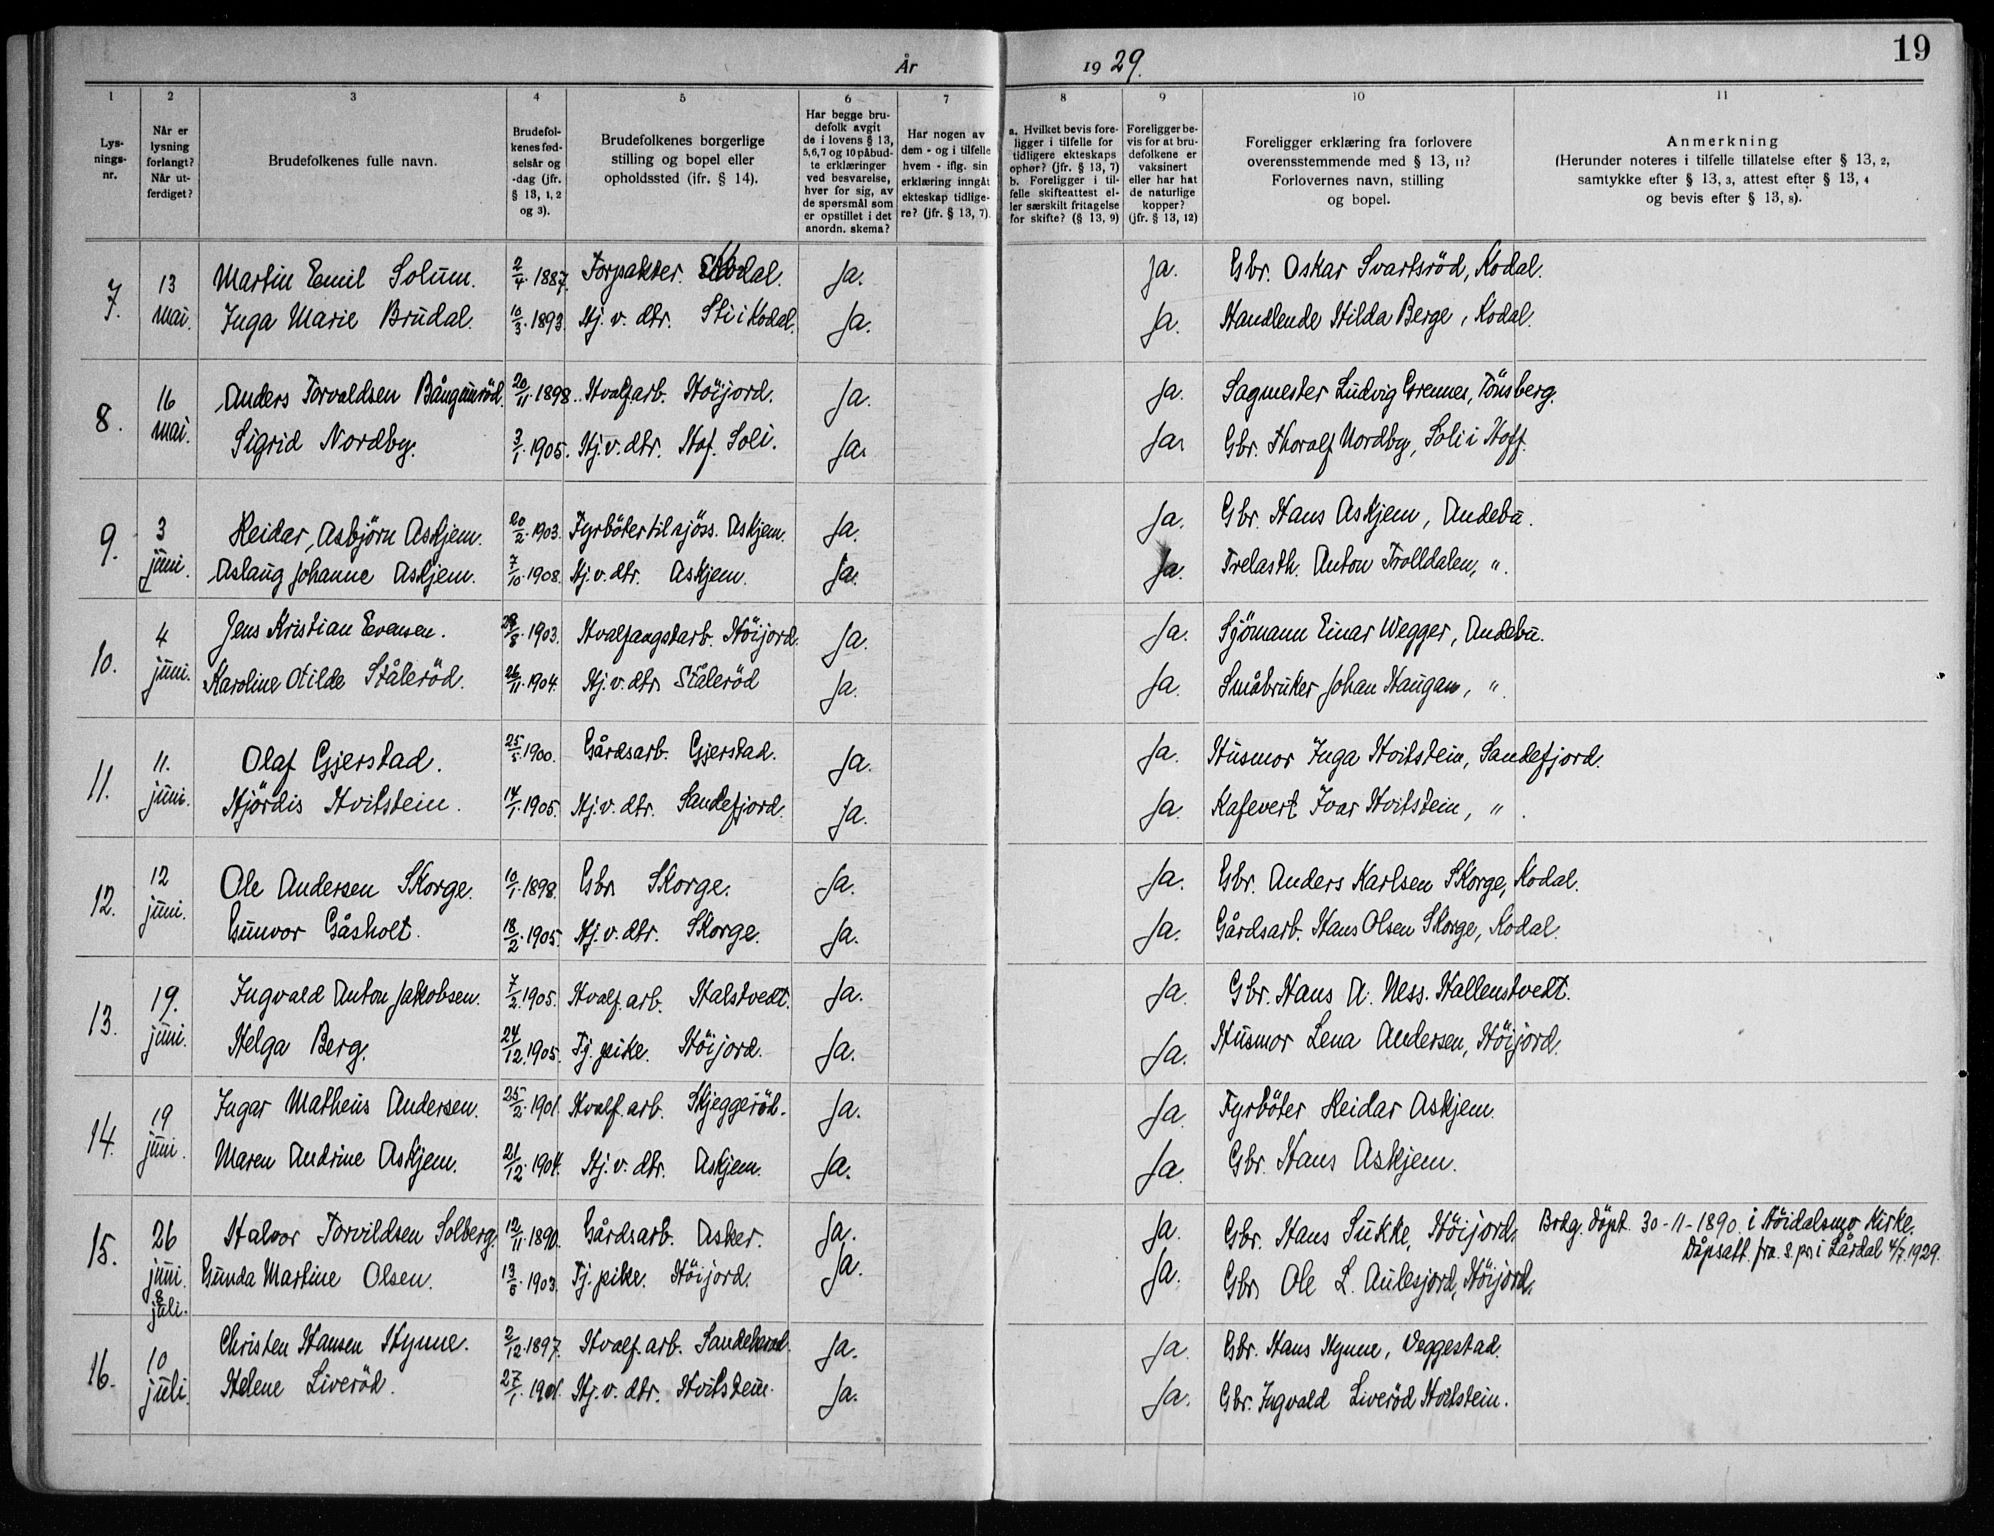 År 1929.
19
1 2 3 4 5 6 7 8 9 10 11
Lysningsnr.
Når er lysning forlangt? Når utferdiget?
Brudefolkenes fulle navn.
Brudefolkenes fødselsår og -dag (jfr. § 13, 1, 2 og 3).
Brudefolkenes borgerlige stilling og bopel eller opholdssted (jfr. § 14).
Har begge brudefolk avgit de i lovens § 13, 5, 6, 7 og 10 påbudte erklæringer ved besvarelse, hver for sig, av de spørsmål som er opstillet i det anordn. skema?
Har nogen av dem - og i tilfelle hvem - iflg. sin erklæring inngåt ekteskap tidligere? (jfr. § 13, 7).
a. Hvilket bevis foreligger i tilfelle for tidligere ekteskaps ophør? (jfr. § 13, 7) b. Foreligger i tilfelle skifteattest eller særskilt fritagelse for skifte? (§ 13, 9)
Foreligger bevis for at brudefolkene er vaksinert eller har hat de naturlige kopper? (jfr. § 13, 12)
Foreligger erklæring fra forlovere overensstemmende med § 13, 11? Forlovernes navn, stilling og bopel.
Anmerkning (Herunder noteres i tilfelle tillatelse efter § 13, 2, samtykke efter § 13, 3, attest efter § 13, 4 og bevis efter § 13, 8).
7. 13 mai. Martin Emil Solum. 2/4. 1887. Forpakter. Kodal. Ja. Ja. Gbr. Oskar Svartsröd, Kodal.
Inga Marie Brudal. 10/3. 1893. Hj. v. dtr. Sti i Kodal. Ja. Ja. Handlende Hilda Berge, Kodal.
8. 16 mai. Anders Torvaldsen Bångmuröd. 20/11. 1898. Hvalf.arb. Höijord. Ja. Ja. Sagmester Ludvig Grennes, Tönsberg.
Sigrid Nordby. 3/1. 1905. Hj. v. dtr. Hof. Soli. Ja. Ja. Gbr. Thoralf Nordby, Soli i Hoff.
9. 3 juni. Reidar Asbjörn Askjem. 20/2. 1903. Fyrböter til sjöss. Askjem. Ja. Ja. Gbr. Hans Askjem, Andebu.
Aslaug Johanne Askjem. 7/10. 1908. Hj. v. dtr. Askjem. Ja. Ja. Trelasth. Anton Trolldalen, ".
10. 4 juni. Jens Kristian Evensen. 28/8. 1903. Hvalfangstarb. Höijord. Ja. Ja. Sjömann Einar Wegger, Andebu.
Karoline Otilde Ståleröd. 26/11. 1904. Hj. v. dtr. Ståleröd Ja. Ja. Småbruker Johan Haugan, ".
11. 11. juni. Olaf Gjerstad. 25/5. 1900. Gårdsarb. Gjerstad. Ja. Ja. Husmor Inga Hvitstein, Sandefjord.
Hjördis Hvitstein. 14/1. 1905. Hj. v. dtr. Sandefjord. Ja. Ja. Kafevert Ivar Hvitstein, ".
12. 12 juni. Ole Andersen Skorge. 10/1. 1898. Gbr. Skorge. Ja. Ja. Gbr. Anders Karlsen Skorge, Kodal.
Gunvor Gåsholt. 18/2. 1905. Hj. v. dtr. Skorge. Ja. Ja. Gårdsarb. Hans Olsen Skorge, Kodal.
13. 19. juni. Ingvald Anton Jakobsen. 7/2. 1905. Hvalf. arb. Halstvedt. Ja. Ja. Gbr. Hans A. Ness. Hallenstvedt.
Helga Berg. 24/12. 1905. Tj. pike. Höijord. Ja. Ja. Husmor Lena Andersen, Höijord.
14. 19 juni. Ingar Matheus Andersen. 25/2. 1901. Hvalf. arb. Skjeggeröd. Ja. Ja. Fyrböter Reidar Askjem.
Maren Andrine Askjem. 21/12. 1904. Hj. v. dtr. Askjem. Ja. Ja. Gbr. Hans Askjem.
15. 26 juni. 8 juli. Halvor Torvildsen Solberg. 12/11. 1890. Gårdsarb. Asker. Ja. Ja. Gbr. Hans Sukke, Höijord. Brdg. döpt 30-11-1890 i Höidalsmo Kirke.
Dåpsatt. fra s.pr. i Lårdal 4/7. 1929.
Gunda Martine Olsen. 1903. Tj. pike. Höijord. Ja. Ja. Gbr. Ole L. Aulesjord, Höijord.
16. 10 juli. Christen Hansen Hynne. 2/12. 1897. Hvalf. arb. Sandeherad. Ja. Ja. Gbr. Hans Hynne, Veggestad.
Helene Liveröd. 27/1. 1901. Hj. v. dtr. Hvitstein. Ja. Ja. Gbr. Ingvald Liveröd Hvitstein.